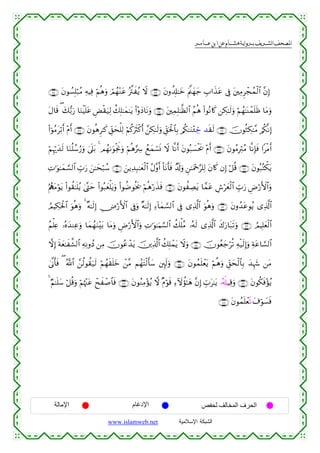 المصحف الشريف برواية هشام عن ابن عامر
إِنَّ ٱلْمُجْرِمِينَ فِى عَذَابِ جَهَنَّمَ خَٰلِدُونَ لَا يُفَتَّرُ عَنْهُمْ وَهُمْ فِيهِ مُبْلِسُونَ
وَمَا ظَلَمْنَٰهُمْ وَلَٰكِن كَانُوا۟ هُمُ ٱلظَّٰلِمِينَ وَنَادَوْا۟ يَٰمَٰلِكُ لِيَقْضِ عَلَيْنَا رَبُّكَ قَالَ
إِنَّكُم مَّٰكِثُونَ لَقَد جِّئْنَٰكُم بِٱلْحَقِّ وَلَٰكِنَّ أَكْثَرَكُمْ لِلْحَقِّ كَٰرِهُونَ أَمْ أَبْرَمُوٓا۟
أَمْرًا فَإِنَّا مُبْرِمُونَ أَمْ يَحْسَبُونَ أَنَّا لَا نَسْمَعُ سِرَّهُمْ وَنَجْوَىٰهُم بَلَىٰ وَرُسُلُنَا لَدَيْهِمْ
يَكْتُبُونَ قُلْ إِن كَانَ لِلرَّحْمَٰنِ وَلَدٌ فَأَنَا۠ أَوَّلُ ٱلْعَٰبِدِينَ سُبْحَٰنَ رَبِّ ٱلسَّمَٰوَٰتِ
وَٱلْأَرْضِ رَبِّ ٱلْعَرْشِ عَمَّا يَصِفُونَ فَذَرْهُمْ يَخُوضُوا۟ وَيَلْعَبُوا۟ حَتَّىٰ يُلَٰقُوا۟ يَوْمَهُمُ
ٱلَّذِى يُوعَدُونَ وَهُوَ ٱلَّذِى فِى ٱلسَّمَآءِ إِلَٰهٌ وَفِى ٱلْأَرْضِ إِلَٰهٌ وَهُوَ ٱلْحَكِيمُ
ٱلْعَلِيمُ وَتَبَارَكَ ٱلَّذِى لَهُۥ مُلْكُ ٱلسَّمَٰوَٰتِ وَٱلْأَرْضِ وَمَا بَيْنَهُمَا وَعِندَهُۥ عِلْمُ
ٱلسَّاعَةِ وَإِلَيْهِ تُرْجَعُونَ وَلَا يَمْلِكُ ٱلَّذِينَ يَدْعُونَ مِن دُونِهِ ٱلشَّفَٰعَةَ إِلَّا
مَن شَهِدَ بِٱلْحَقِّ وَهُمْ يَعْلَمُونَ وَلَئِن سَأَلْتَهُم مَّنْ خَلَقَهُمْ لَيَقُولُنَّ ٱللَّهُ فَأَنَّىٰ
يُؤْفَكُونَ وَقِيلَهُۥ يَٰرَبِّ إِنَّ هَٰٓؤُلَآءِ قَوْمٌ لَّا يُؤْمِنُونَ فَٱصْفَحْ عَنْهُمْ وَقُلْ سَلَٰمٌ
فَسَوْفَ تَعْلَمُونَ
الحرف المخالف لحفص الإدغام الإمالة
الشبكة الإسلامية www.islamweb.net